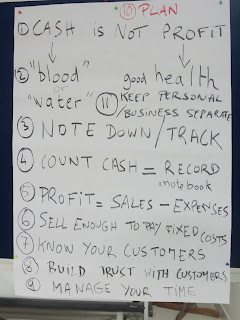 ⑩ PLAN
① CASH is NOT PROFIT
② "blood" good health
or
"water" ⑪ KEEP PERSONAL
/BUSINESS SEPARATE
③ NOTE DOWN/TRACK
④ COUNT CASH = RECORD
notebook
⑤ PROFIT = SALES - EXPENSES
⑥ SELL ENOUGH TO PAY FIXED COSTS
⑦ KNOW YOUR CUSTOMERS
⑧ BUILD TRUST WITH CUSTOMERS
⑨ MANAGE YOUR TIME